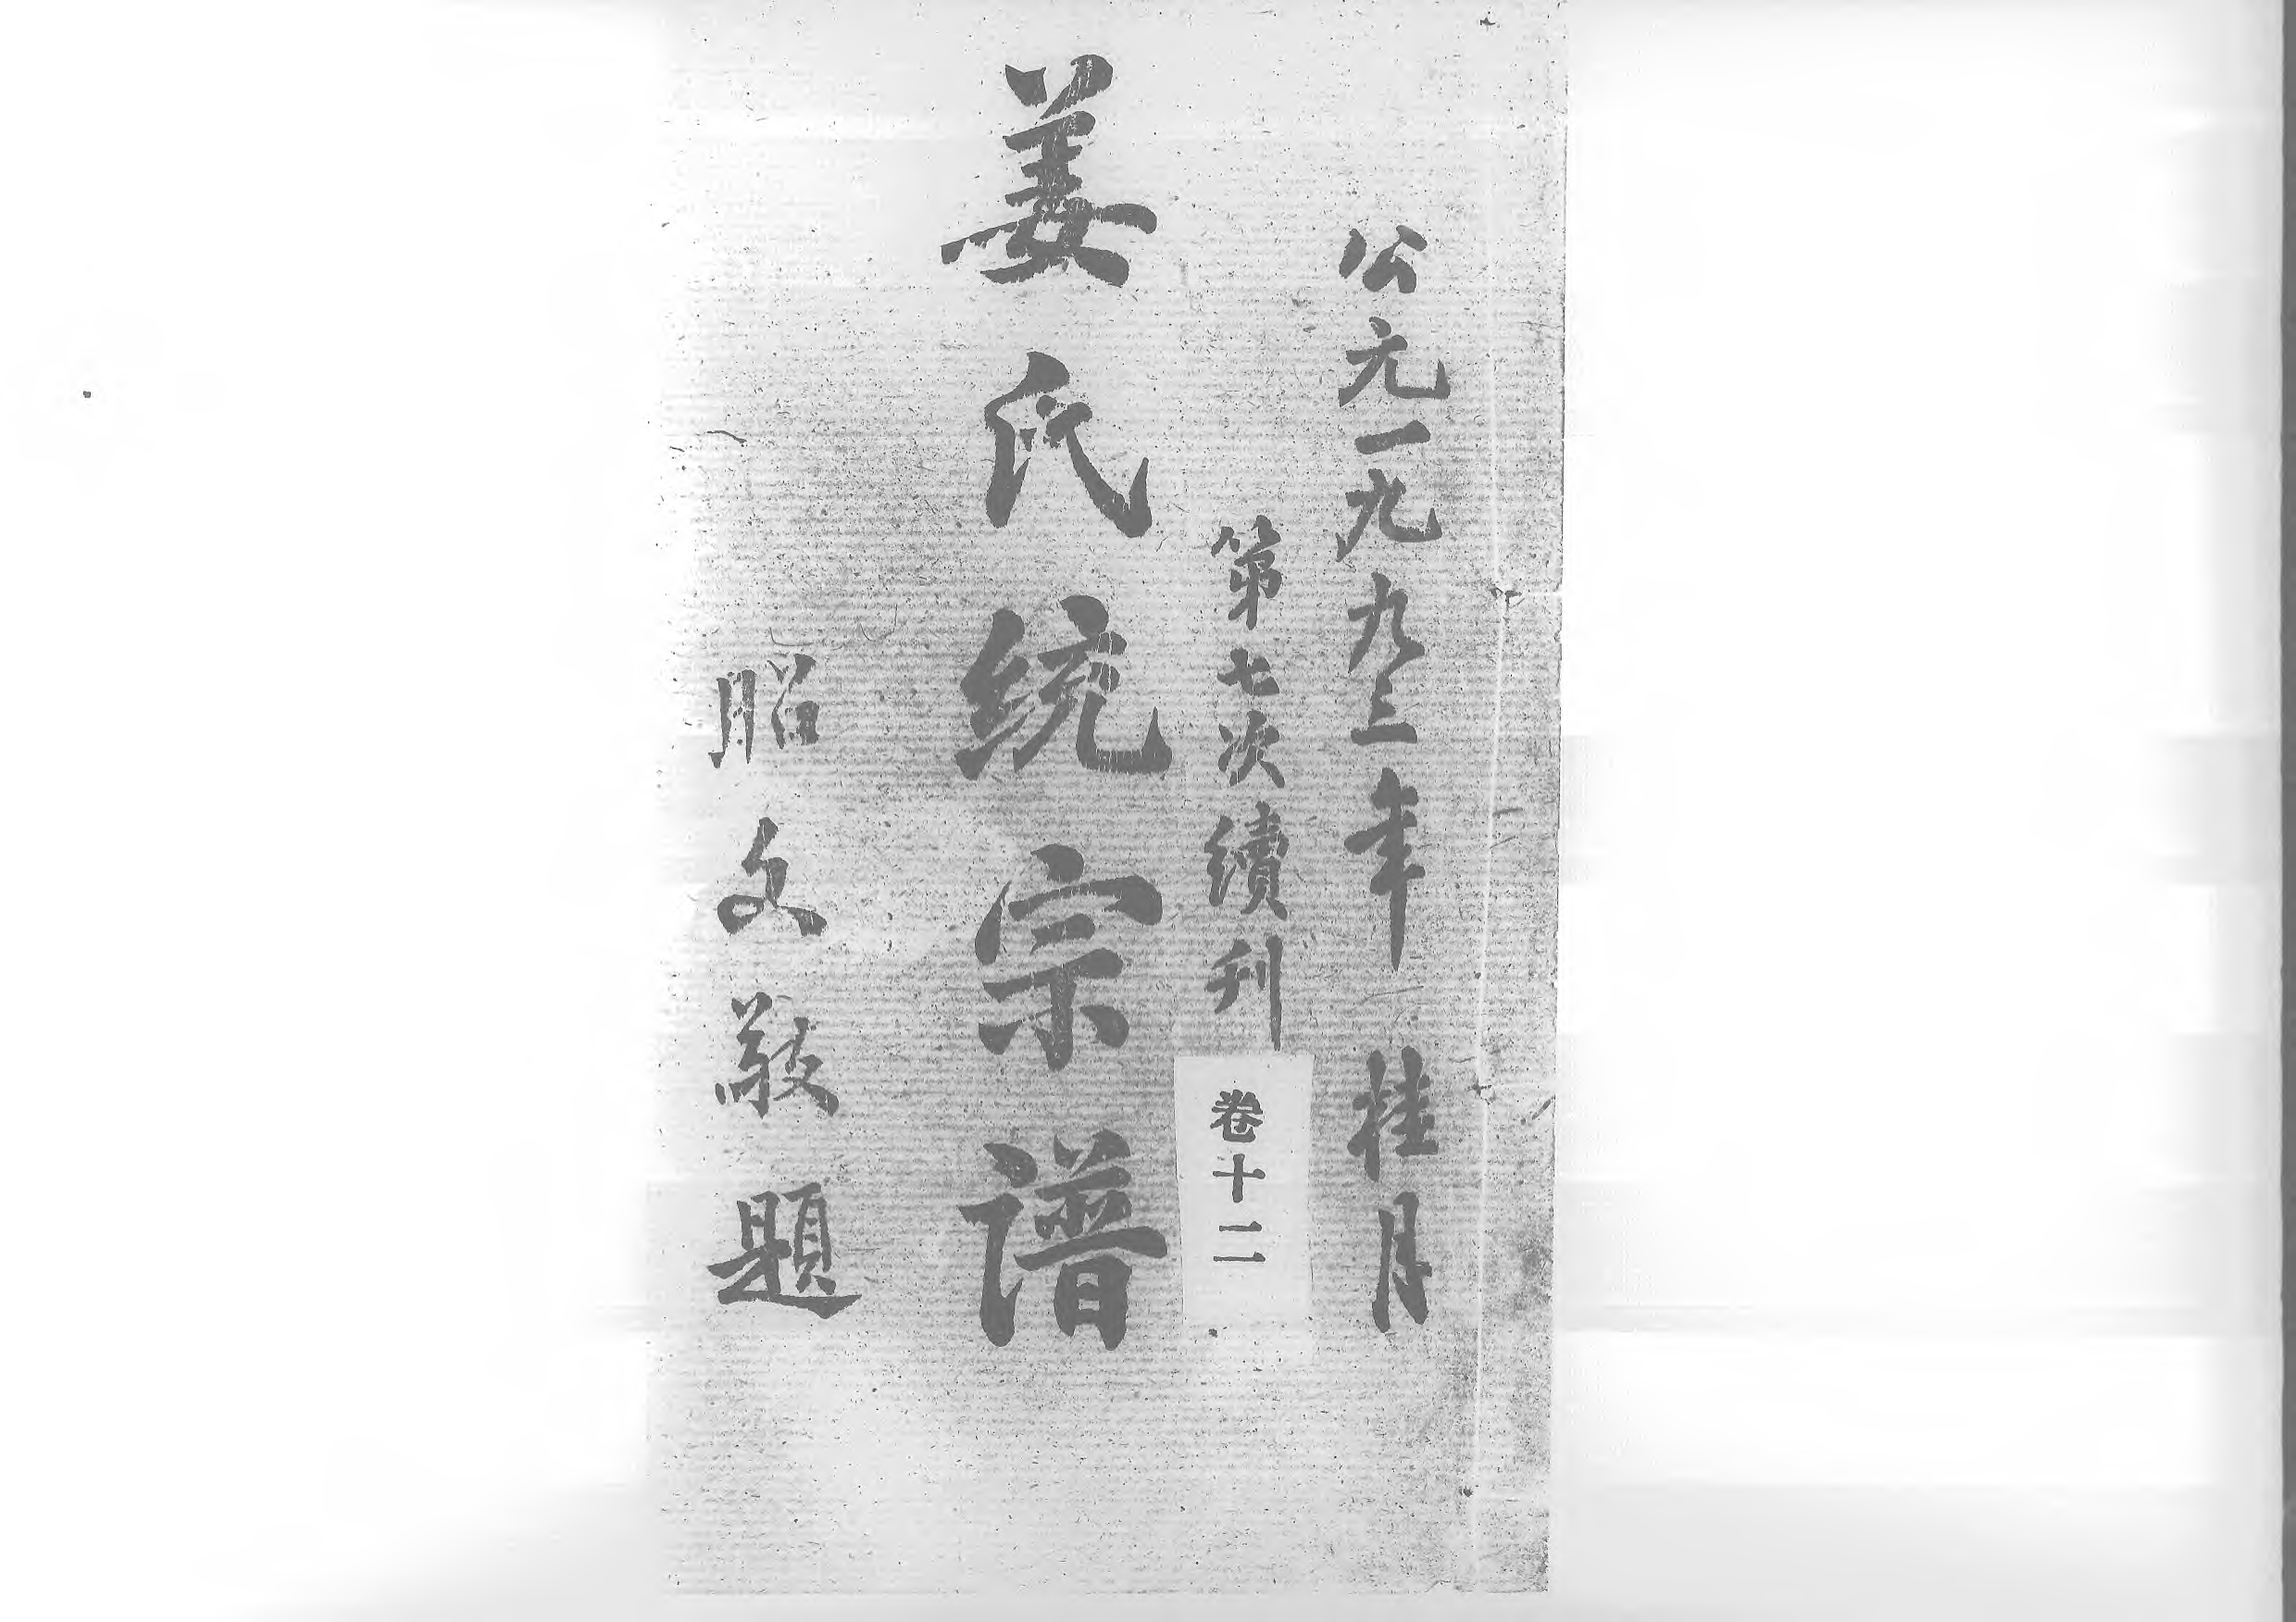 公元一九九三年桂月
第七次續刊
卷十二
姜氏统宗谱
昭文敬题